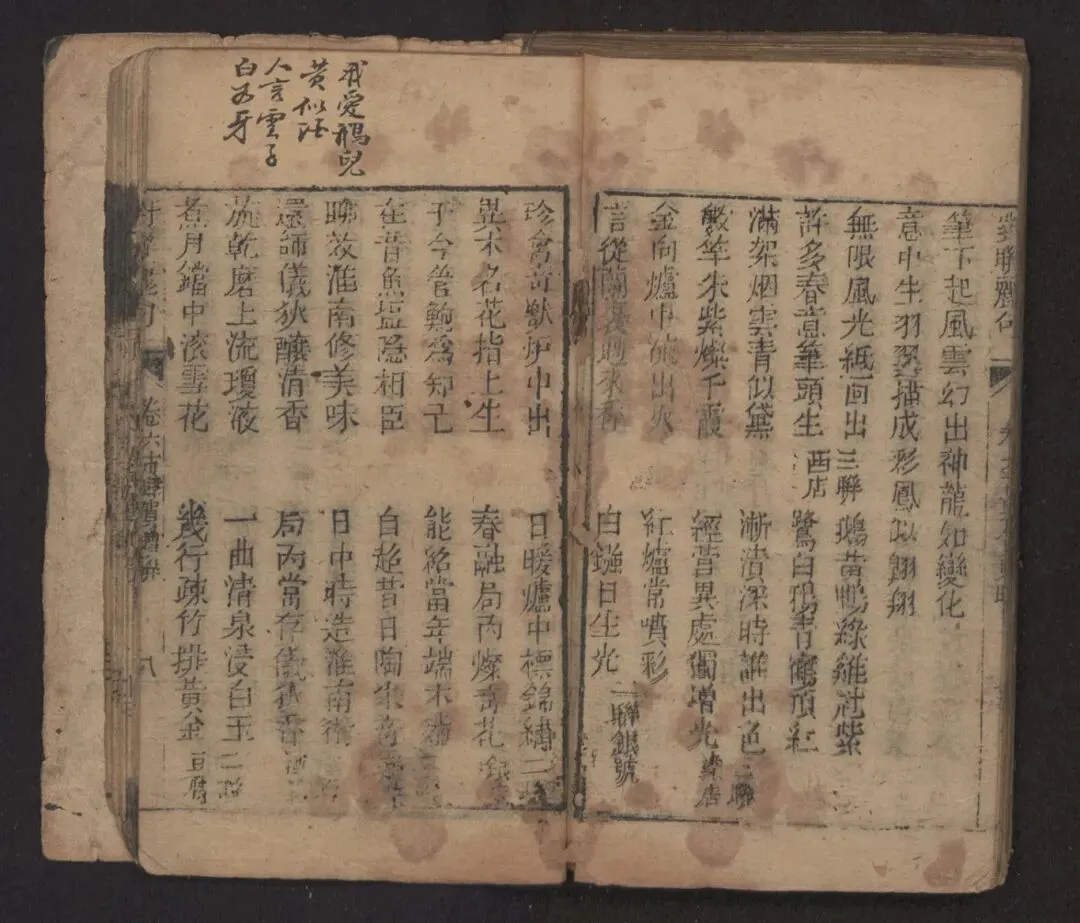 對聯
筆下起風雲幻出神龍知變化
意中生羽翼描成彩鳳似翱翔
無限風光紙面出三聯 鵝黃鴨綠雞冠紫
許多春意筆頭生西店 鷺白鴉青鶴頂紅
滿架烟雲青似黛 漸漬深時誰出色二聯
數竿朱紫燦千霞 經營異處獨增光染店
金向爐中流出火 紅爐常噴彩
言從蘭 來香 白鏹日生光 二聯銀號
珍禽奇獸炉中出 日暖爐中標錦繡二
異木名花指上生 春融局內燦奇花
于今管鮑為知己 能 當年端木
在昔魚塩隐相臣 自超昔日陶朱
聊效淮南修美味 日中時造淮南術
還師儀狄釀清香 局內常存儀狄香
旋乾磨上流瓊液 一曲清泉浸白玉二聯
煮月鐺中滚雪花 幾行疎竹排黃金豆腐
卷六 八
我愛鵝兒
黃似
人言雲子
白 牙